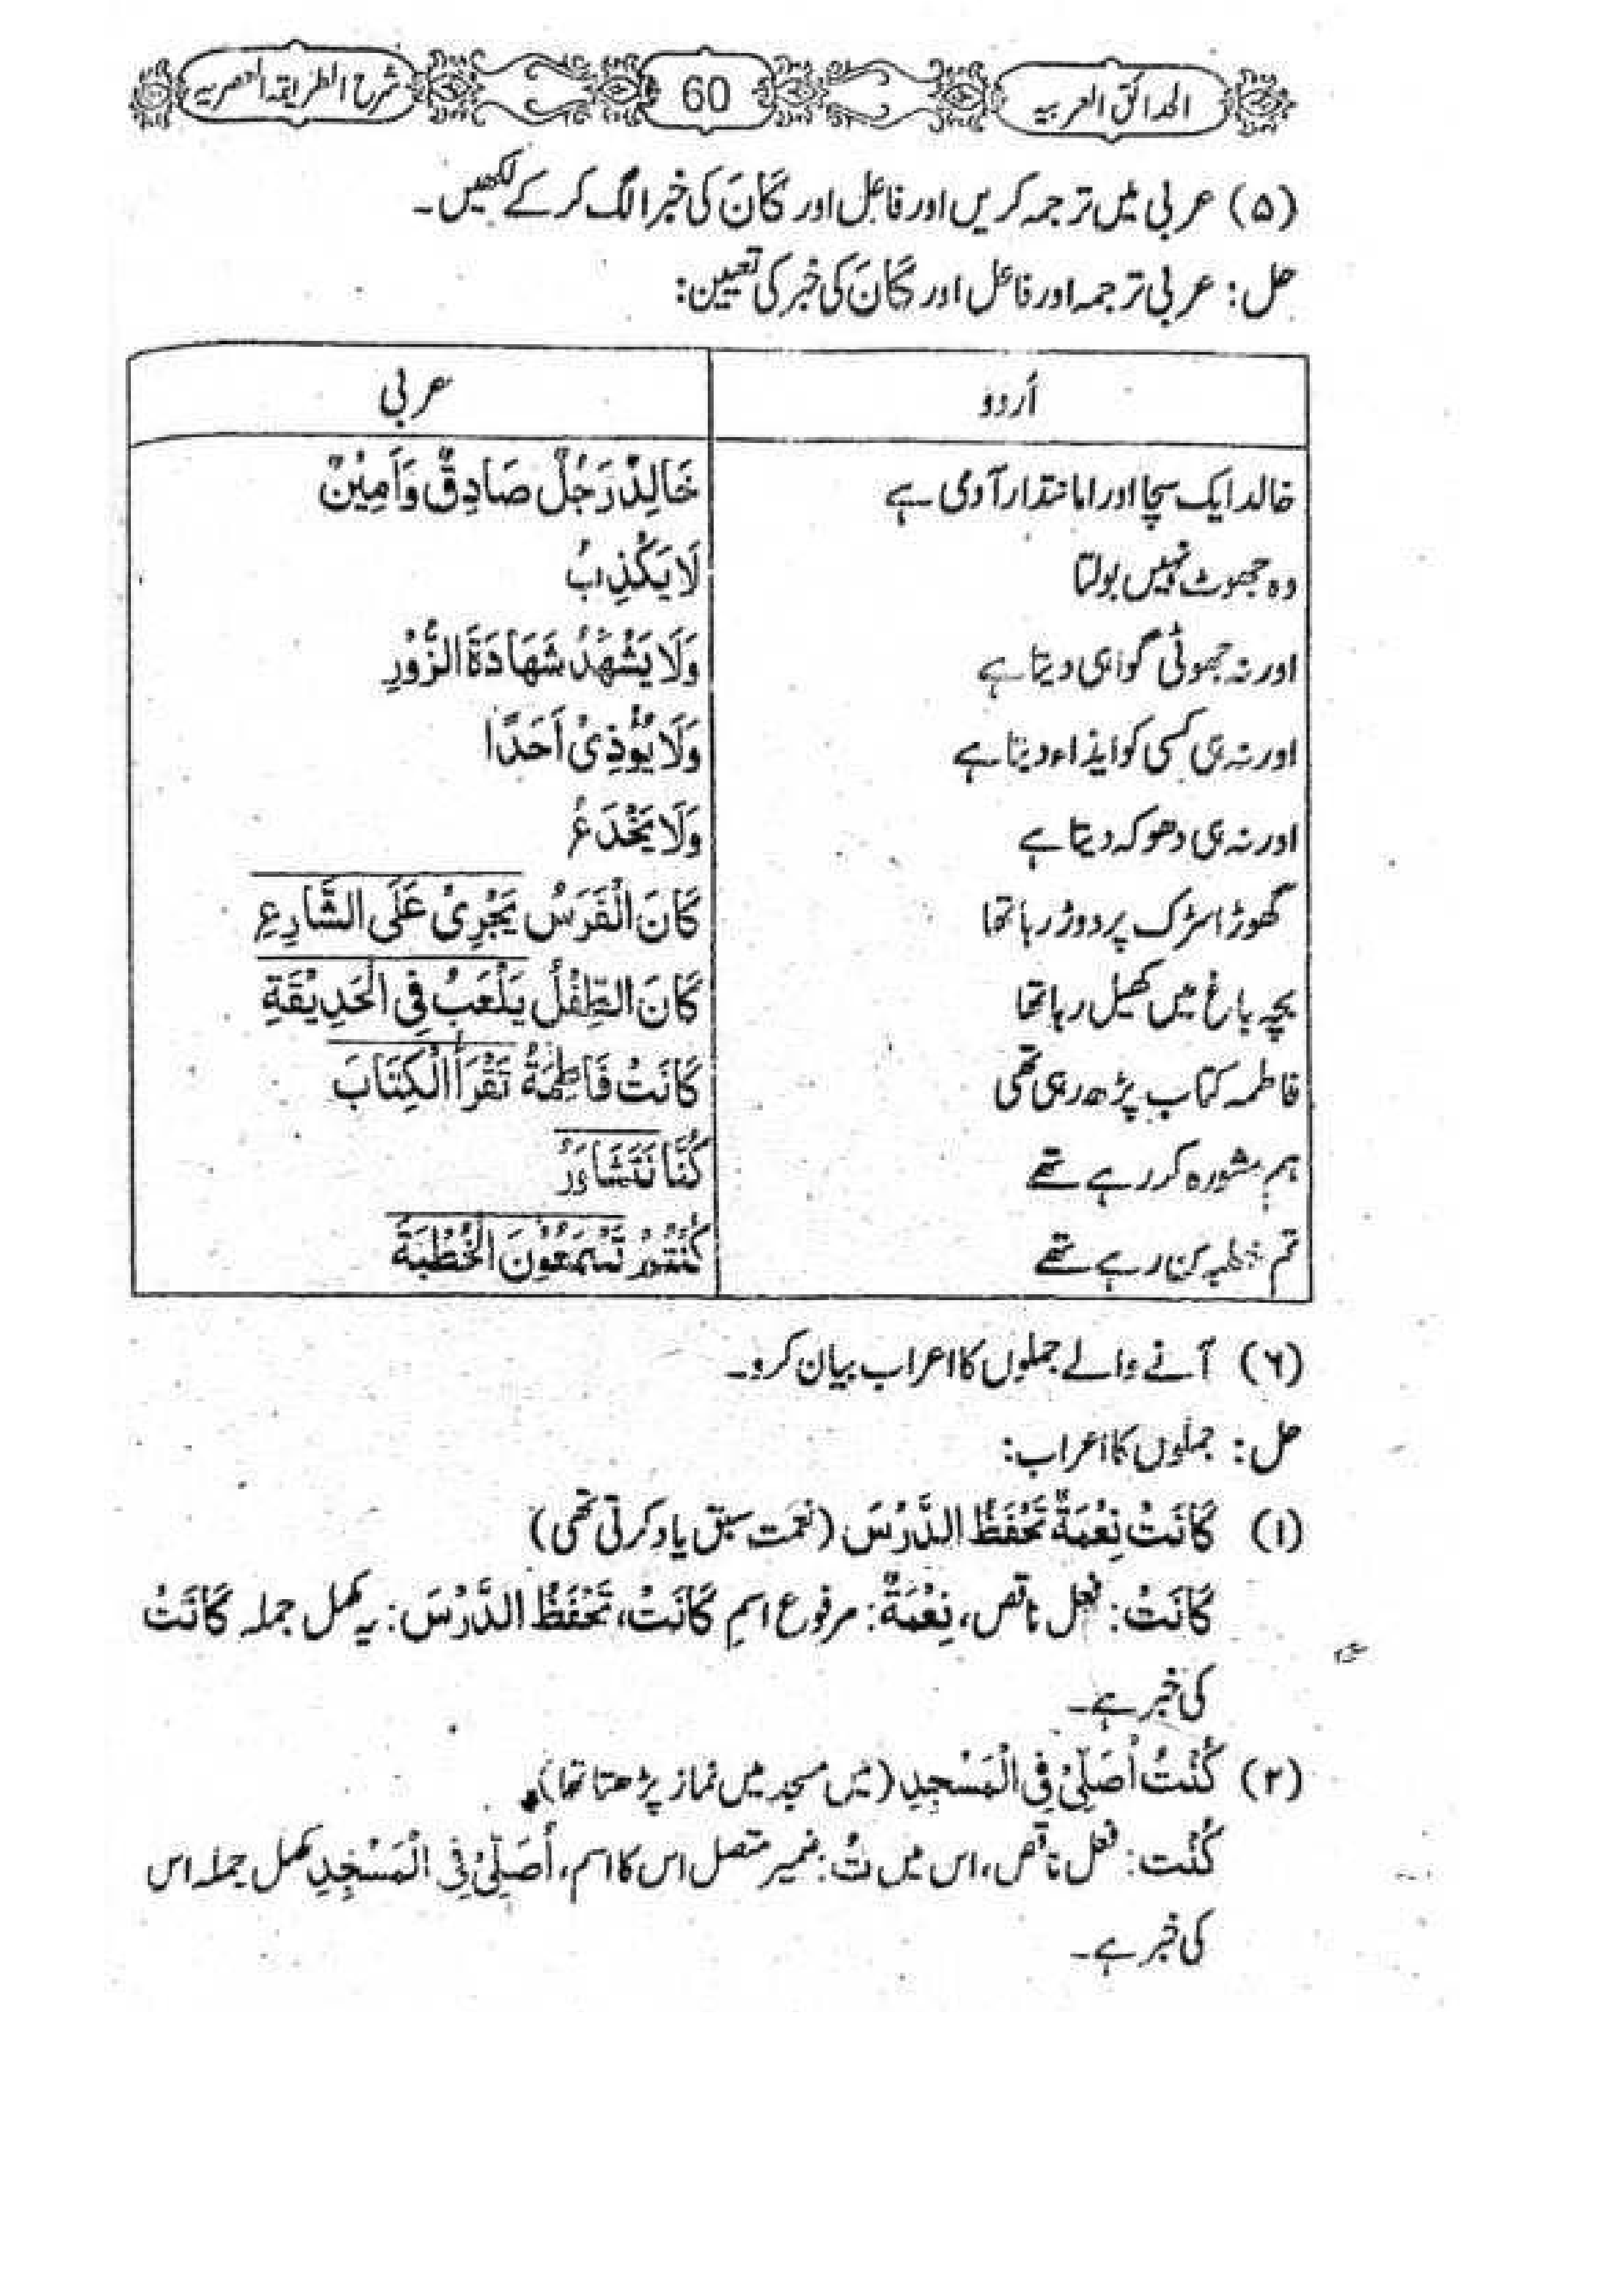 الحدائق العربیہ 60 شرح الطریقۃ العصریہ
(۵) عربی میں ترجمہ کریں اور فاعل اور كَانَ کی خبر الگ کر کے لکھیں۔
حل: عربی ترجمہ اور فاعل اور كَانَ کی خبر کی تعیین:
اُردو عربی
خالد ایک سچا اور امانتدار آدمی ہے خَالِدٌ رَجُلٌ صَادِقٌ وَاَمِيْنٌ
وہ جھوٹ نہیں بولتا لَا يَكْذِبُ
اور نہ جھوٹی گواہی دیتا ہے وَلَا يَشْهَدُ شَهَادَةَ الزُّوْرِ
اور نہ ہی کسی کو ایذاء دیتا ہے وَلَا يُؤْذِىْ اَحَدًا
اور نہ ہی دھوکہ دیتا ہے وَلَا يَخْدَعُ
گھوڑا سڑک پر دوڑ رہا تھا كَانَ الْفَرَسُ يَجْرِىْ عَلَى الشَّارِعِ
بچہ باغ میں کھیل رہا تھا كَانَ الطِّفْلُ يَلْعَبُ فِى الْحَدِيْقَةِ
فاطمہ کتاب پڑھ رہی تھی كَانَتْ فَاطِمَةُ تَقْرَأُ الْكِتَابَ
ہم مشورہ کر رہے تھے كُنَّا نَتَشَاوَرُ
تم خطبہ سن رہے تھے كُنْتُمْ تَسْمَعُوْنَ الْخُطْبَةَ
(۶) آنے والے جملوں کا اعراب بیان کرو۔
حل: جملوں کا اعراب:
(۱) كَانَتْ نِعْمَةٌ تَحْفَظُ الدَّرْسَ (نعمت سبق یاد کرتی تھی)
كَانَتْ: فعل ناقص، نِعْمَةٌ: مرفوع اسمِ كَانَتْ، تَحْفَظُ الدَّرْسَ: یہ مکمل جملہ كَانَتْ
کی خبر ہے۔
(۲) كُنْتُ اُصَلِّىْ فِى الْمَسْجِدِ (میں مسجد میں نماز پڑھتا تھا)
كُنْت: فعل ناقص، اس میں تُ: ضمیر متصل اس کا اسم، اُصَلِّىْ فِى الْمَسْجِدِ مکمل جملہ اس
کی خبر ہے۔